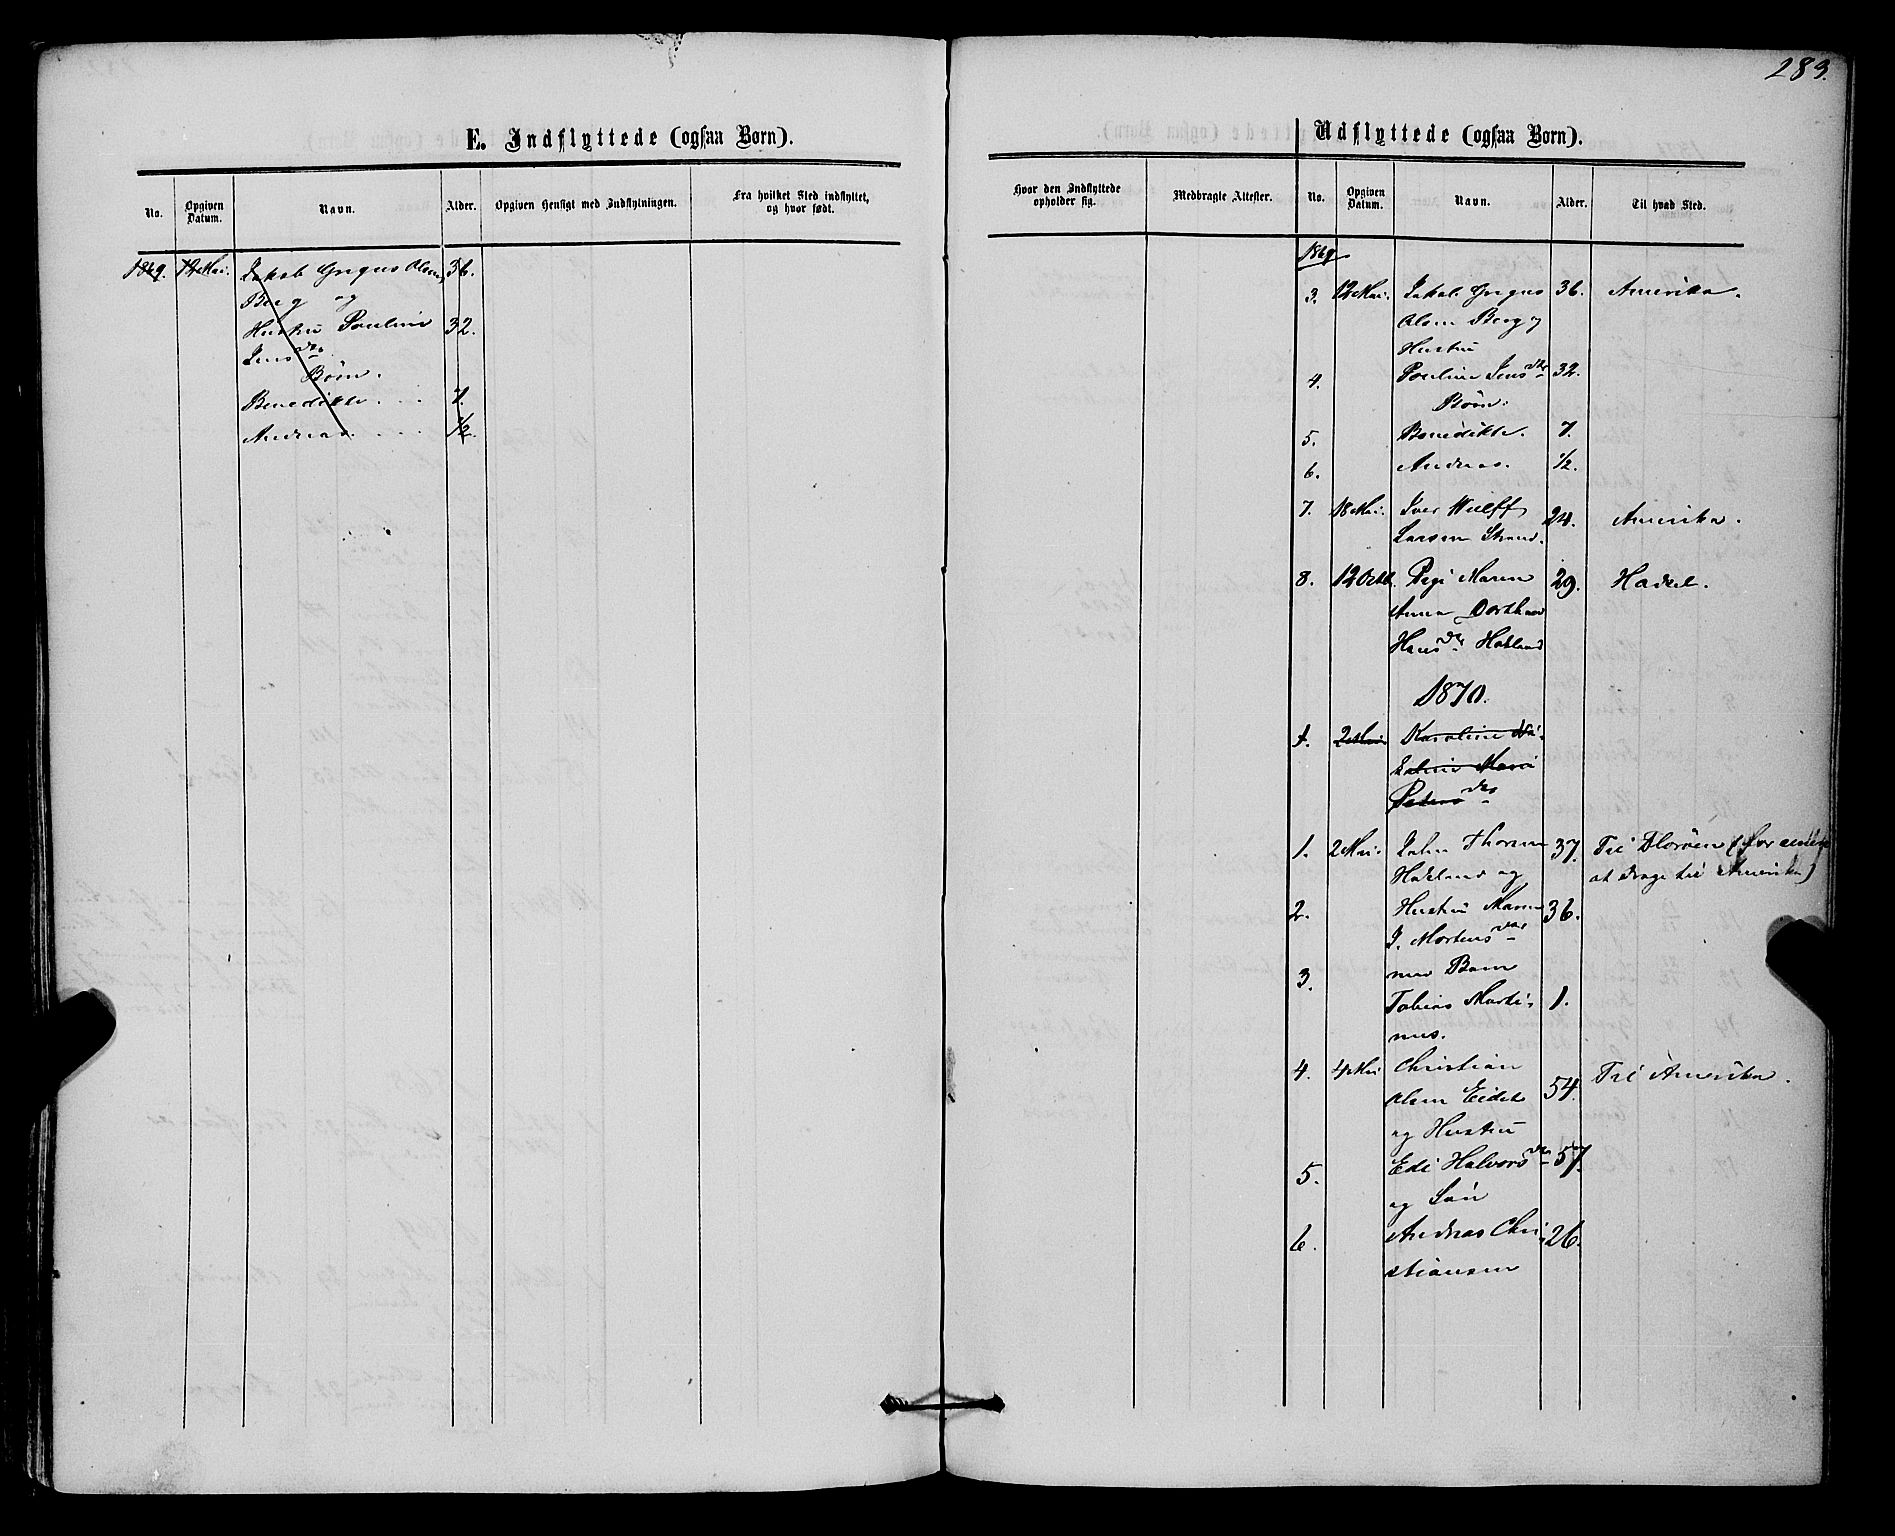 283.
E. Indflyttede (ogsaa Børn).
No.
Opgiven Datum.
Navn.
Alder.
Opgiven Hensigt med Indflytningen.
Fra hvilket Sted indflyttet, og hvor født.
1869. 12 Mai. Jakob Gregus Olsen 36.
Berg og
Hustru Pauline 32.
Jensdtr
Børn.
Benedikte . . . 7.
Andreas . . . . 1/2.
Udflyttede (ogsaa Børn).
Hvor den Indflyttede opholder sig.
Medbragte Attester.
No.
Opgiven Datum.
Navn.
Alder.
Til hvad Sted.
1869
3. 12 Mai. Jakob Gregus 36. Amerika.
Olsen Berg og
Hustru
4. Pauline Jensdtr 32.
Børn.
5. Benedikte. 7.
6. Andreas. 1/2.
7. 18 Mai. Iver Wulff 24. Amerika.
Larsen Strand.
8. 12 Octb. Pige Maren 29. Hadsel.
Anna Dorthea
Hansdtr Hokland
1870.
1. 2 Mai Karoline
Marie
Pedersdtr
1. 2 Mai. John Thoresen 37. Til (for senere
Hokland og at drage til Amerika)
2. Hustru Maren 36.
J. Mortensdtr
3. med Barn
Tobias Marti- 1.
nus.
4. 4 Mai Christian
Olsen Eidet 54. Til Amerika.
og Hustru
5. Edi Halvorsdtr 57.
og Søn
6. Andreas Chri- 26.
stiansen